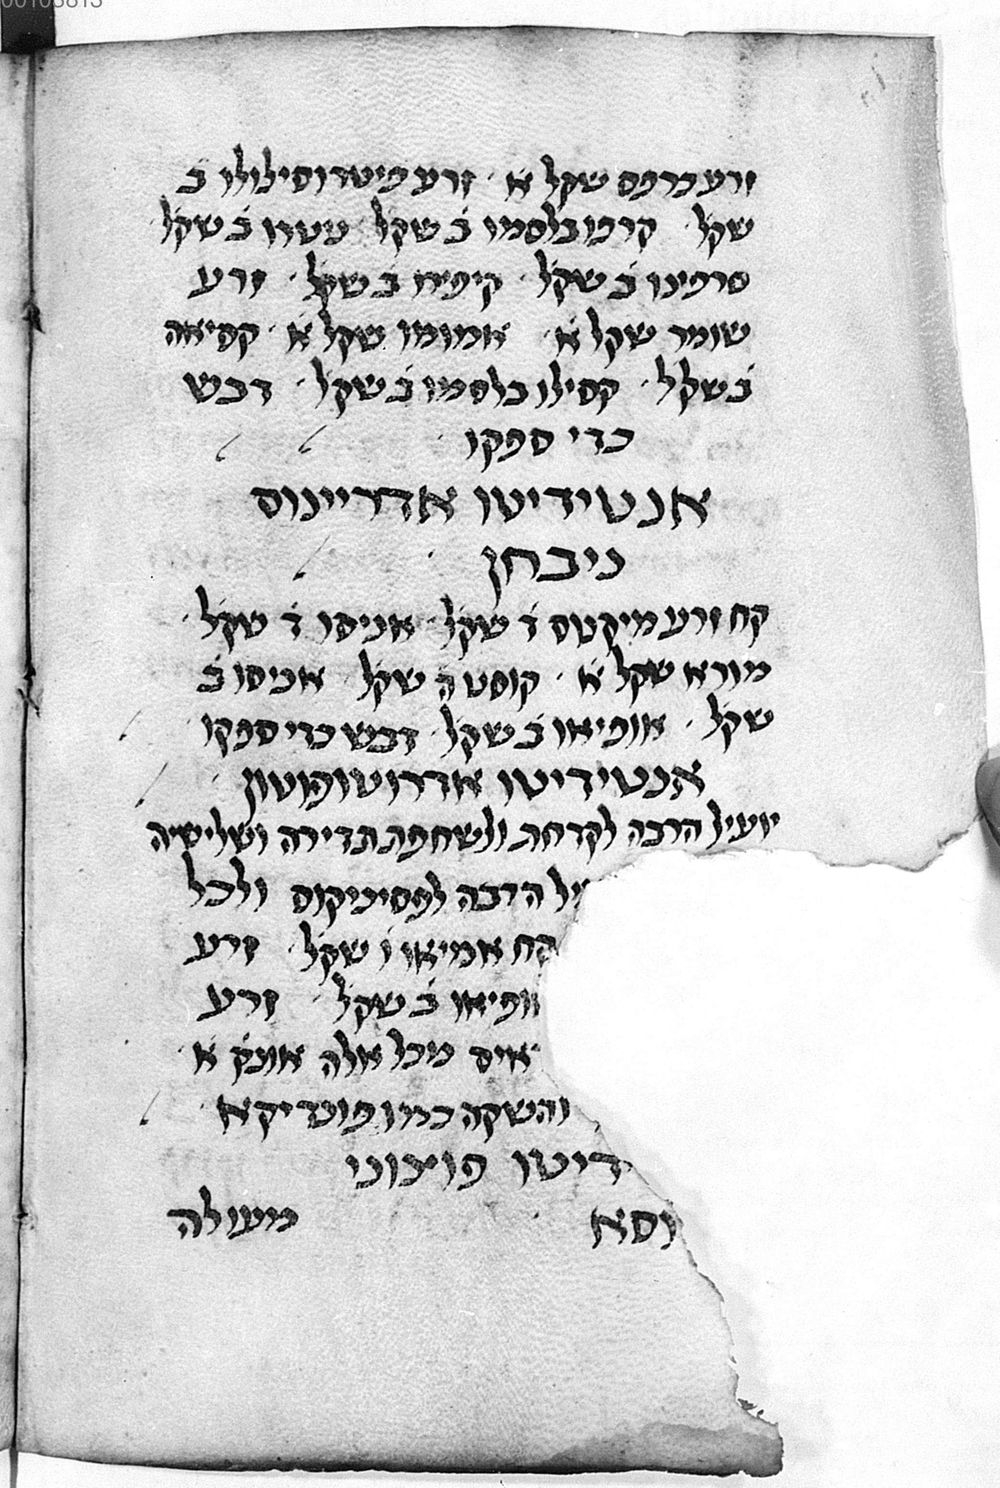 00105813
זרע כרפס שקל א׳ זרע פיטרוסילולו ב׳
שקל׳ קרפובלסמו ב׳ שקל׳ עטרו ב׳ שקל׳
סרפינו ב׳ שקל׳ קיפיח ב׳ שקל׳ זרע
שומר שקל א׳ אמומו שקל א׳ קסיאה
ב׳ שקלל׳ קסילו בלסמו ב׳ שקל׳ דבש
כדי ספקו
אנטידיטו אדריינוס
ניבחן
קח זרע מיקטס ד׳ שקל׳ אניסו ד׳ שקל׳
מורא שקל א׳ קוסט ה׳ שקל׳ אניסו ב׳
שקל׳ אופיאו ב׳ שקל׳ דבש כדי ספקו
אנטידיטו אדרוטופוטון
יועיל הרבה לקדחת ולשחפת תדירה ושלישיה
יל הרבה לפסיניקוס ולכל
קח אמיאו ו׳ שקל׳ זרע
ופיאו ב׳ שקל׳ זרע
איס מכל אלה אונק׳ א׳
והשקה כמו פונדיקא
דיטו פוצוני
וסא מעולה